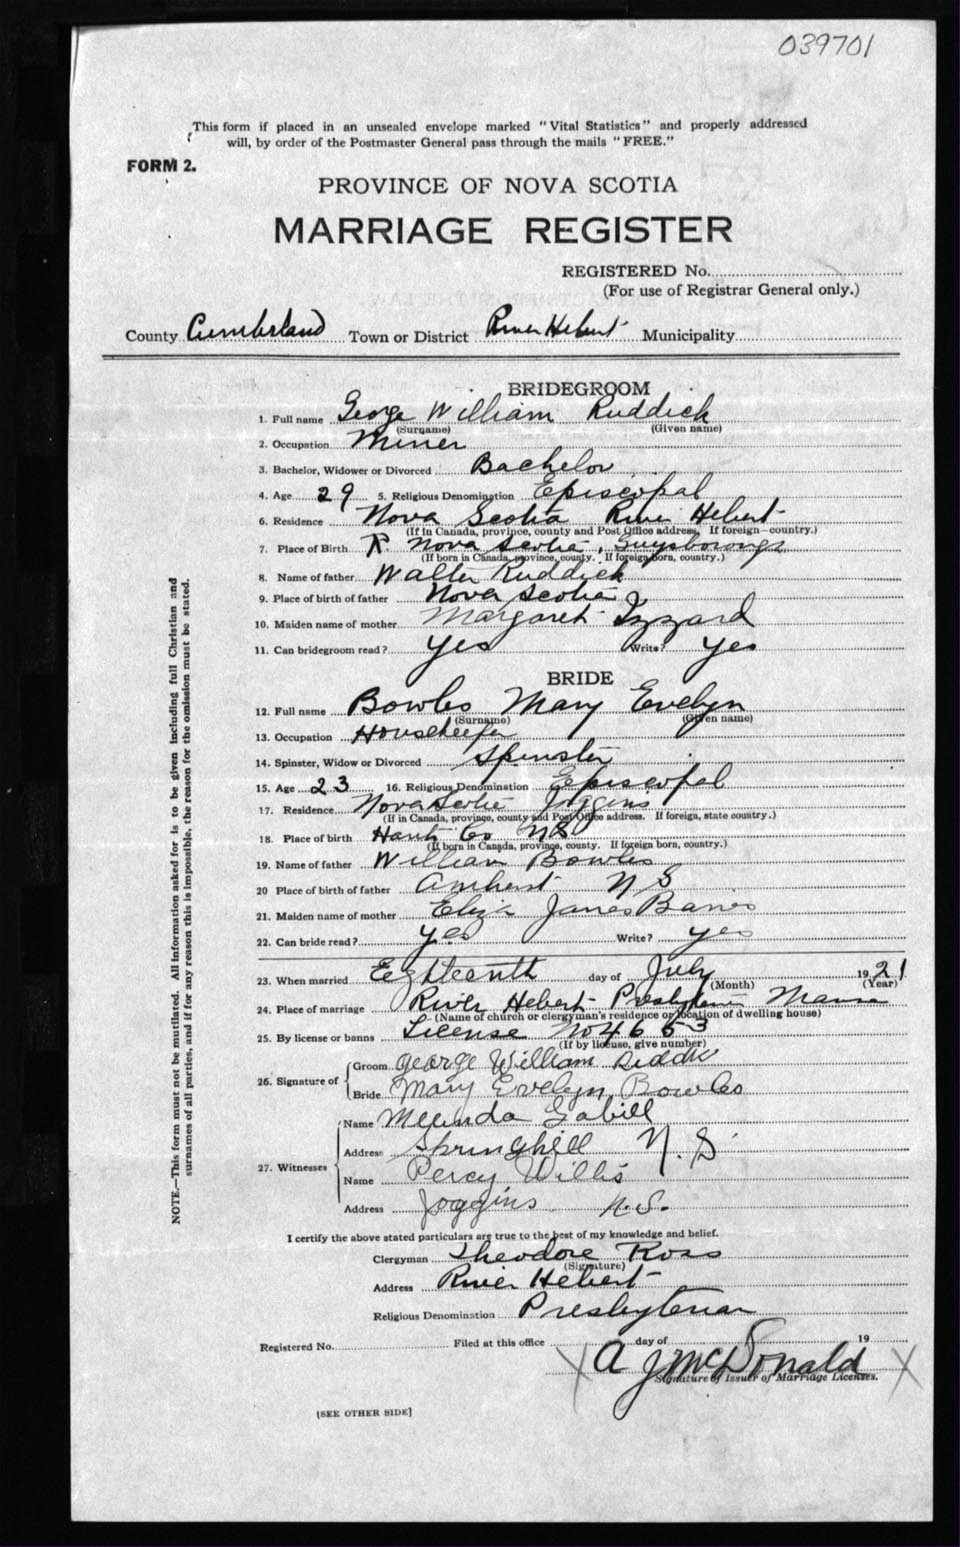 039701
This form if placed in an unsealed envelope marked "Vital Statistics" and properly addressed
will, by order of the Postmaster General pass through the mails "FREE."
FORM 2.
PROVINCE OF NOVA SCOTIA
MARRIAGE REGISTER
REGISTERED No.
(For use of Registrar General only.)
County Cumberland Town or District River Hebert Municipality
BRIDEGROOM
1. Full name George William Ruddick
(Surname) (Given name)
2. Occupation Miner
3. Bachelor, Widower or Divorced Bachelor
4. Age 29 5. Religious Denomination Episcopal
6. Residence Nova Scotia River Hebert
(If in Canada, province, county and Post Office address. If foreign—country.)
7. Place of Birth Nova Scotia,
(If born in Canada, province, county. If foreign born, country.)
8. Name of father Walter Ruddick
9. Place of birth of father Nova Scotia
10. Maiden name of mother Margaret Izzard
11. Can bridegroom read? Yes Write? Yes
BRIDE
12. Full name Bowles Mary Evelyn
(Surname) (Given name)
13. Occupation Housekeeper
14. Spinster, Widow or Divorced Spinster
15. Age 23 16. Religious Denomination Episcopal
17. Residence Nova Scotia Joggins
(If in Canada, province, county and Post Office address. If foreign, state country.)
18. Place of birth Hants Co NS
(If born in Canada, province, county. If foreign born, country.)
19. Name of father William Bowles
20 Place of birth of father Amherst NS
21. Maiden name of mother Eliza
22. Can bride read? Yes Write? yes
23. When married Eighteenth day of July 1921
(Month) (Year)
24. Place of marriage River Hebert Presbyterian Manse
(Name of church or clergyman's residence or location of dwelling house)
25. By license or banns License No 4653
(If by license, give number)
26. Signature of
Groom George William
Bride Mary Evelyn Bowles
27. Witnesses
Name
Address Springhill N. S.
Name Percy Willis
Address Joggins N.S.
I certify the above stated particulars are true to the best of my knowledge and belief.
Clergyman Theodore Ross
(Signature)
Address River Hebert
Religious Denomination Presbyterian
Registered No. Filed at this office day of 19
A J McDonald
Signature of Issuer of Marriage Licenses.
[SEE OTHER SIDE]
NOTE.—This form must not be mutilated. All information asked for is to be given including full Christian and
surnames of all parties, and if for any reason this is impossible, the reason for the omission must be stated.